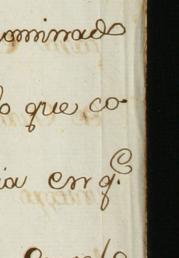 ominado
lo que co-
ia en q.^e